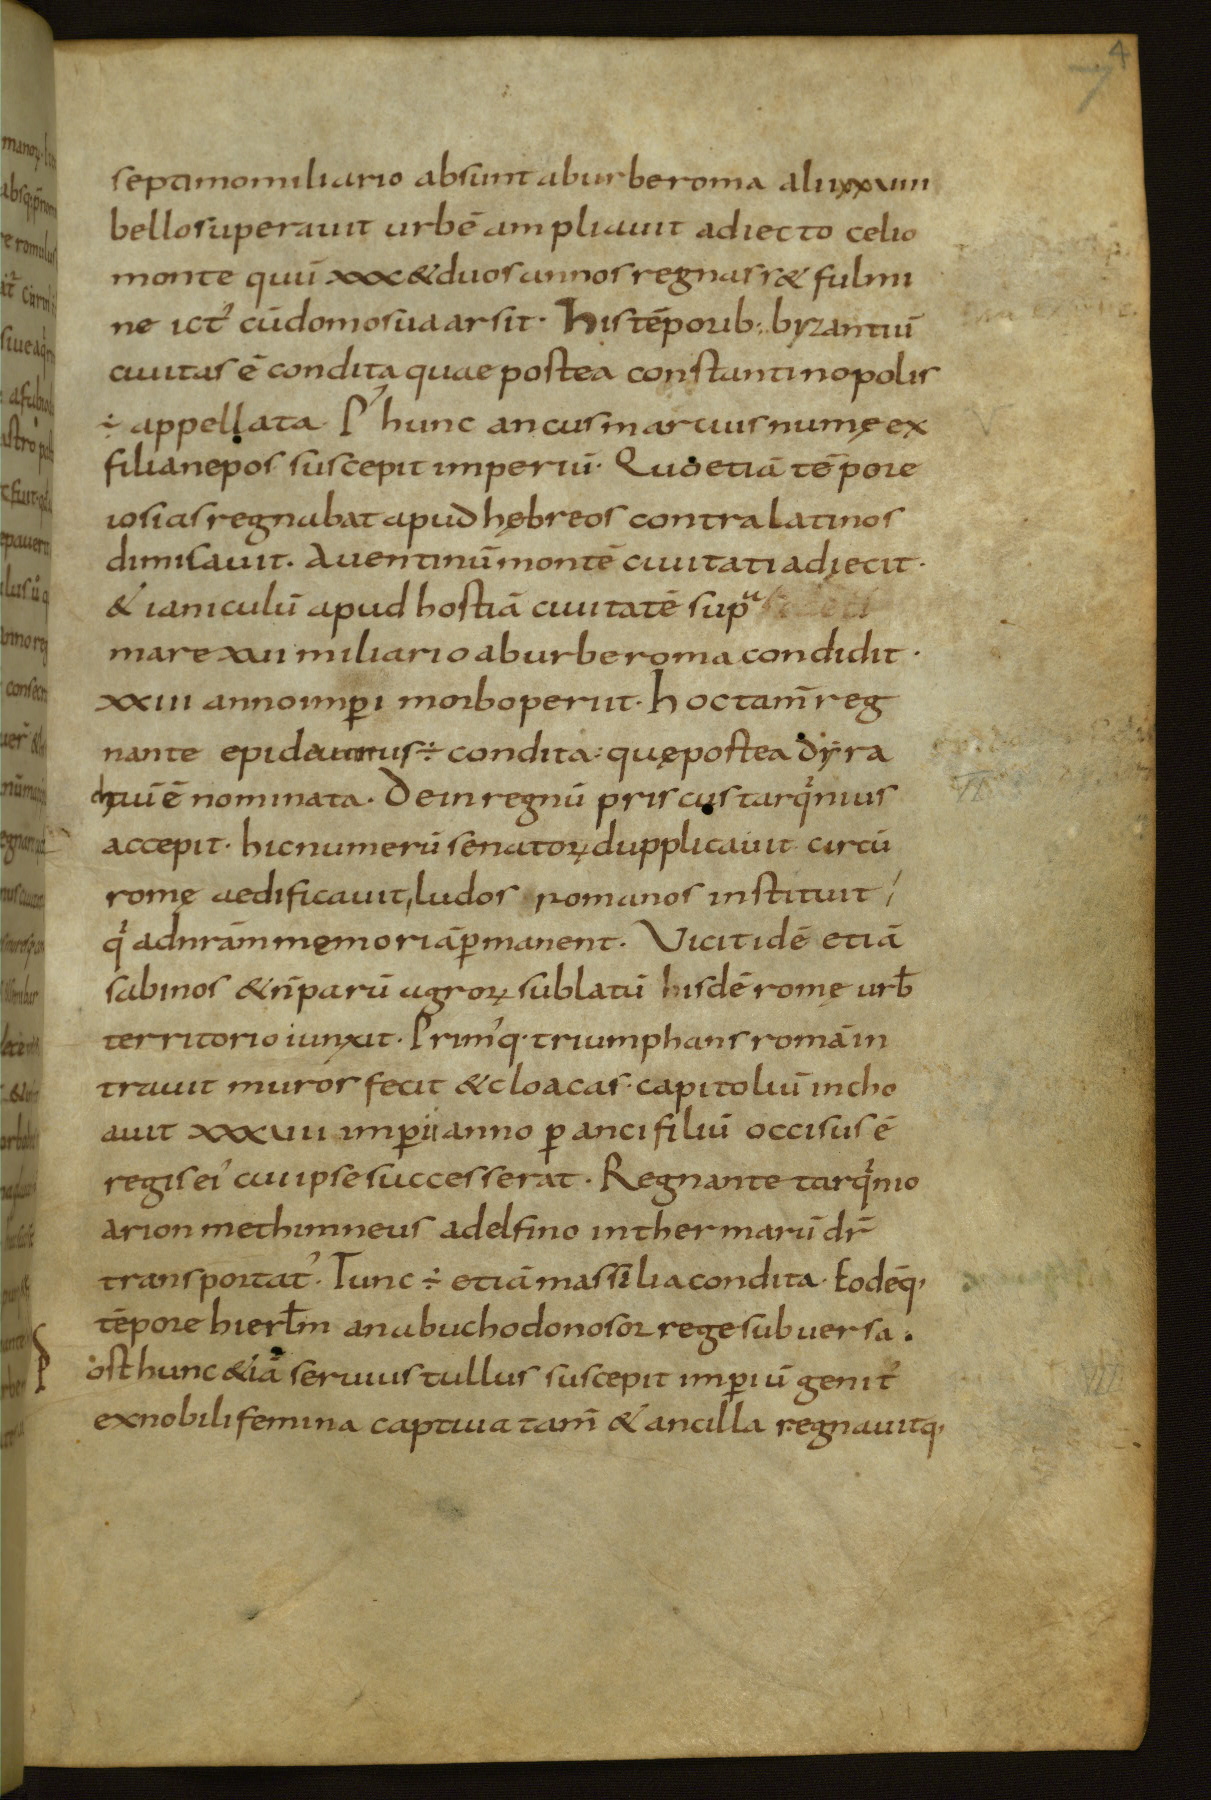 septimo miliario absunt ab urbe roma alii xxviiii
bello superauit urbē ampliauit adiecto celio
monte quū xxx & duos annos regnass& fulmi
ne ict᾽ cū domo sua arsit · His tēporib: byzantiū
ciuitas ē condita quae postea constantinopolis
÷ appellata P᾽ hunc ancus marcius numę ex
filia nepos suscepit imperiū · Quo etiā tēpore
iosias regnabat apud hębreos contra latinos
dimisauit. Auentinū montē ciuitati adiecit ·
& ianiculū apud hostiā ciuitatē supᵃ
mare xvi miliario ab urbe roma condidit ·
xxiii anno imꝑi morbo periit · hoc tam̄ reg
nante epidaunus ÷ condita : quę postea dyra
chiū ē nominata · Dein regnū priscus tarqͥnius
accepit · hic numerū senatoꝝ dupplicauit circū
romę aedificauit, ludos romanos instituit /
qͥ ad nrām męmoriā ꝑmanent · Vicit idē etiā
sabinos & n̄ parū agroꝝ sublatū hisdē romę urb̄
territorio iunxit · Prim᾽q· triumphans romā in
trauit muros fecit & cloacas · capitoliū incho
auit xxxviii imꝑii anno ꝑ anci filiū occisus ē
regis ei᾽ cui ipse successerat · Regnante tarqͥnio
arion methimneus a delfino in thermarū dr̄
transportat᾽ · Tunc ÷ etiā massilia condita · Eodēq,
tēpore hierl̄m a nabuchodonosor rege subuersa .
Post hunc &iā seruius tullus suscepit imꝑiū genit᾽
ex nobili femina captiua tam̄ & ancilla regnauitq,